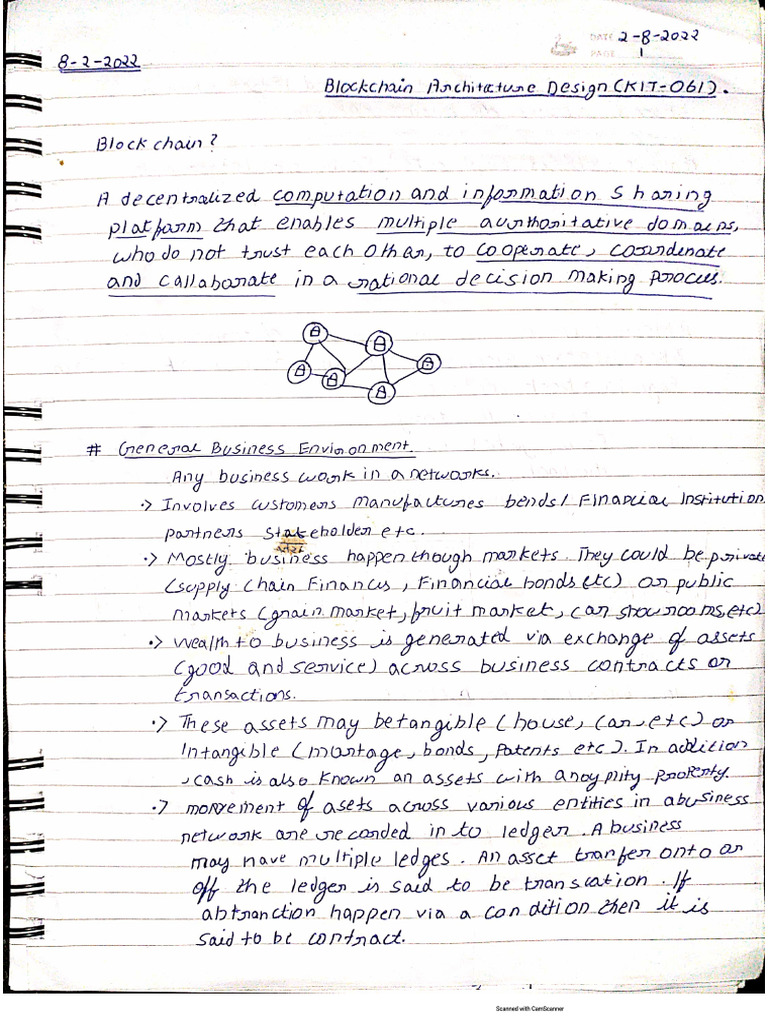 DATE 2-8-2022
PAGE 1
8-2-2022
Blockchain Architecture Design (KIT-061).
Blockchain?
A decentralized computation and information sharing
platform that enables multiple authoritative domains,
who do not trust each other, to cooperate, coordinate
and collaborate in a rational decision making process.
# General Business Environment.
Any business work in a networks.
·> Involves customers manufactures bends/ Financial Institution
partners stakeholder etc.
·> Mostly business happen though markets. They could be private
(supply chain Finances, Financial bonds etc) or public
markets (grain market, fruit market, car showrooms, etc)
·> Wealth to business is generated via exchange of assets
(good and service) across business contracts or
transactions.
·> These assets may be tangible (house, car, etc) or
Intangible (mortage, bonds, Patents etc). In addition
, cash is also known an assets with anoymity property.
·> movement of asets across various entities in abusiness
network are recorded in to ledger. A business
may have multiple ledges. An asset tranfer onto or
off the ledger is said to be transcation. If
abtranction happen via a condition then it is
said to be contract.
Scanned with CamScanner